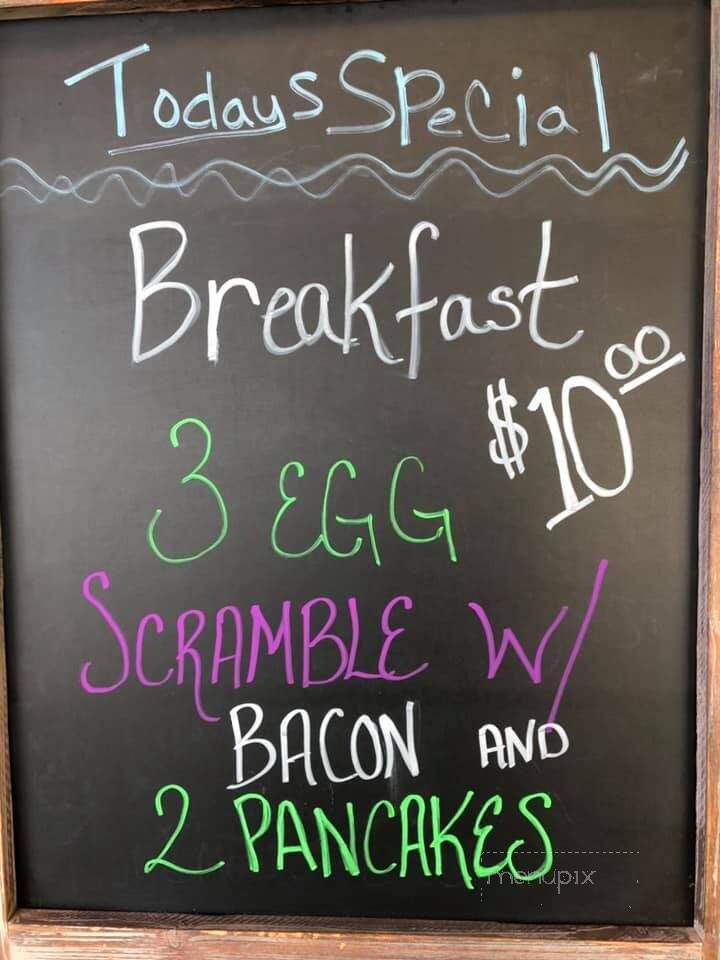 Todays Special
Breakfast
$10.00
3 EGG
SCRAMBLE W/
BACON AND
2 PANCAKES
menupix